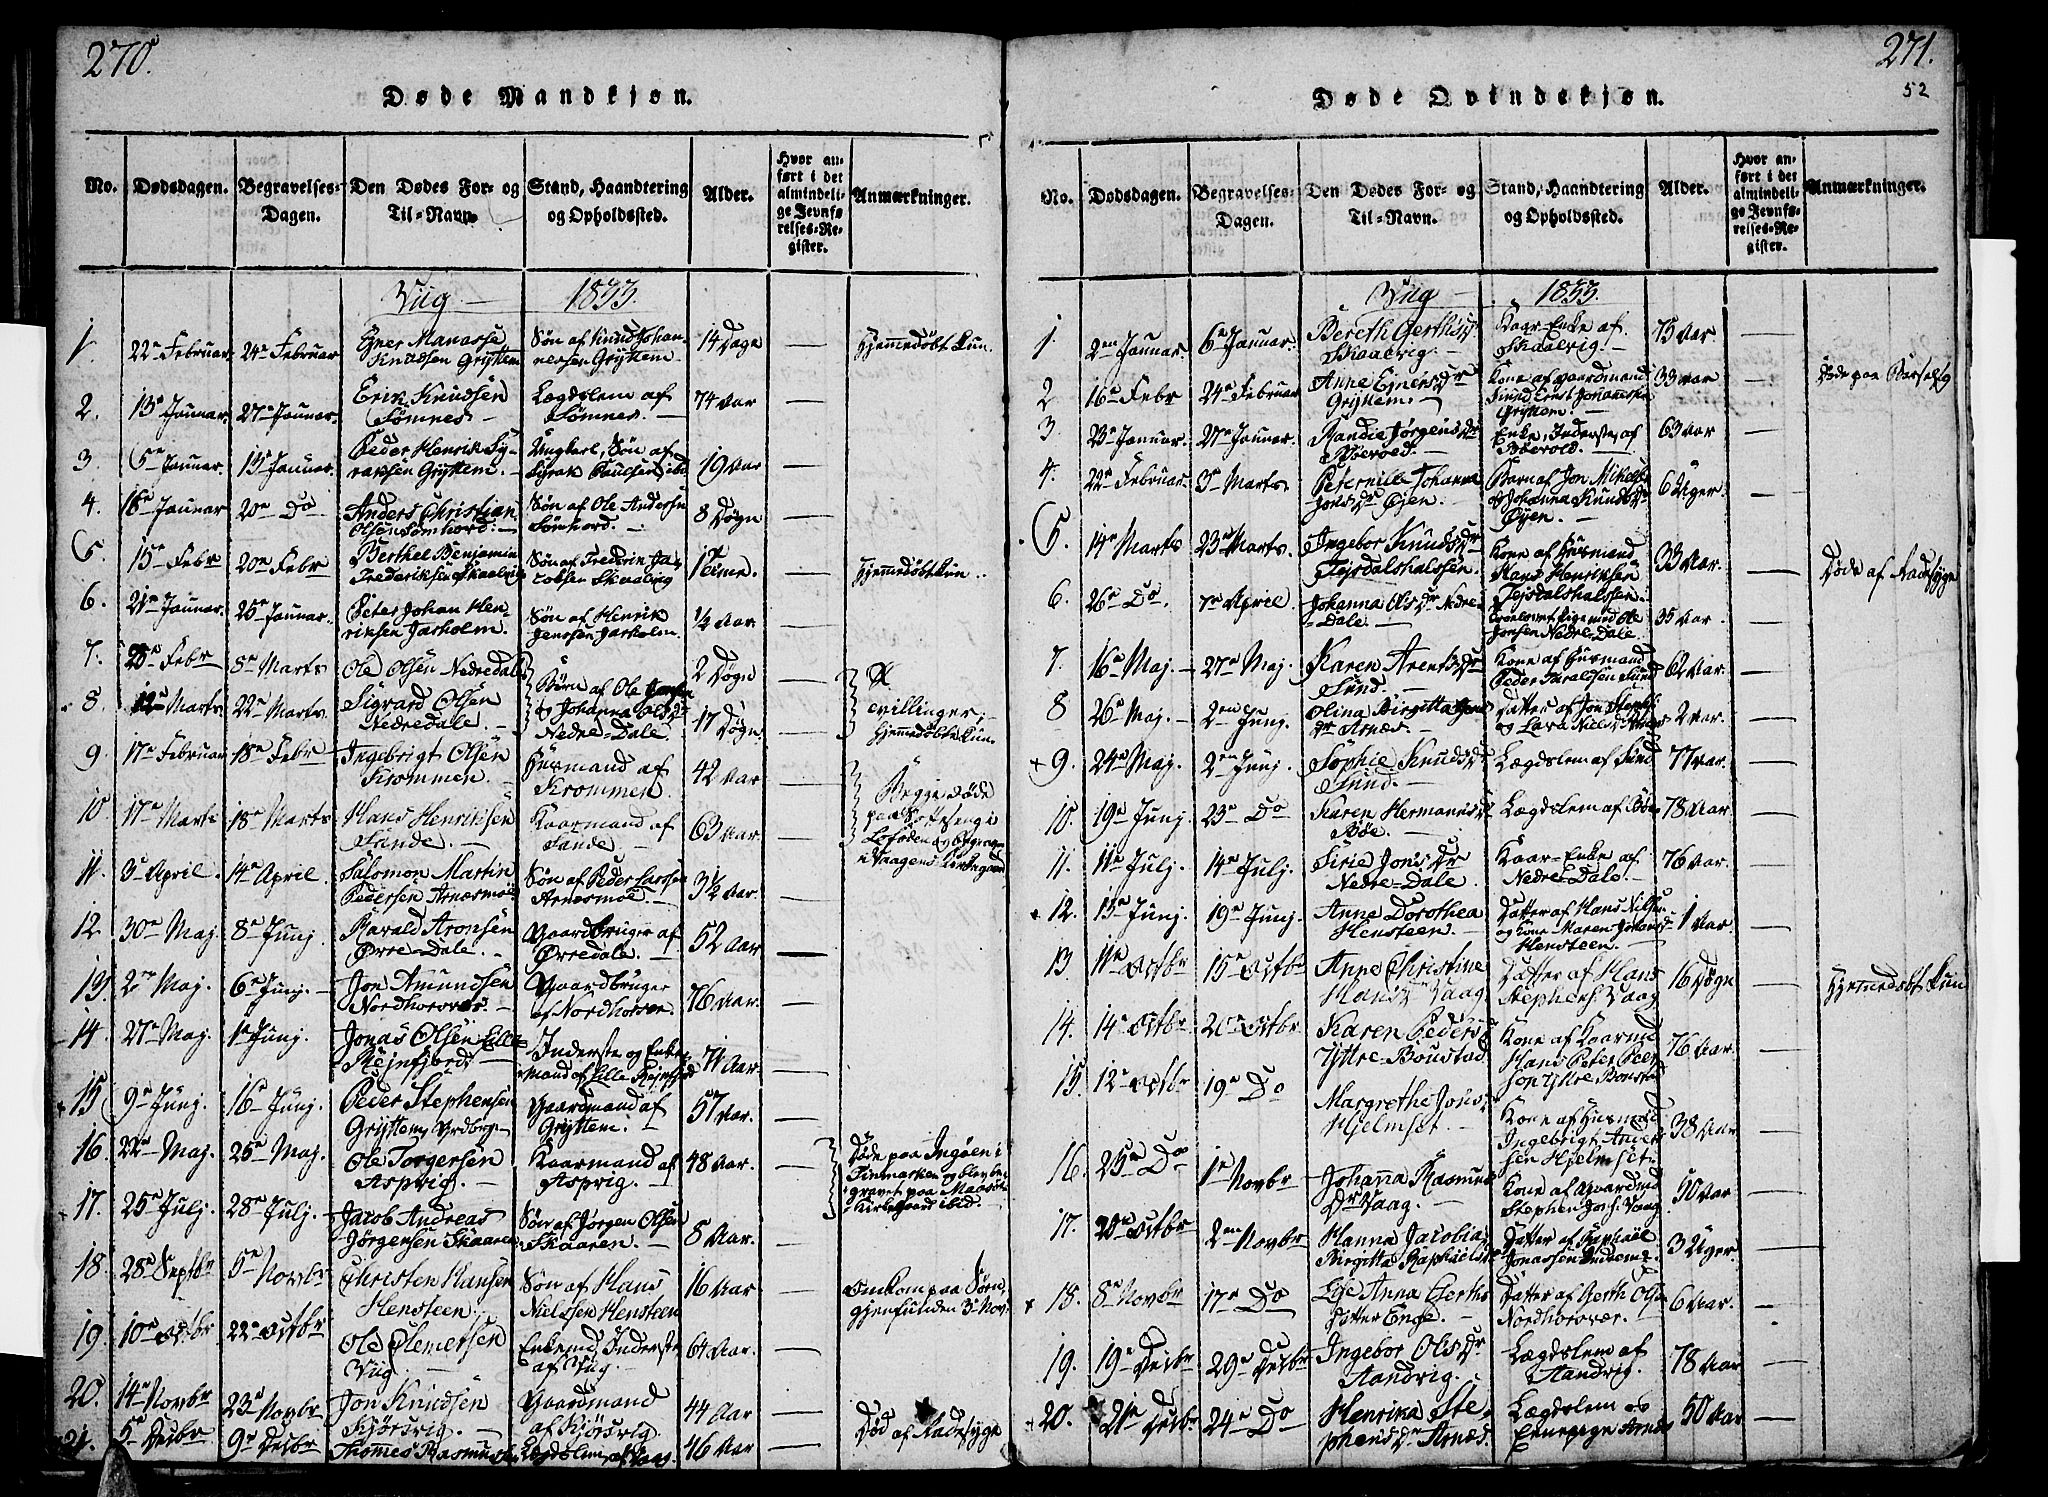 270.
Døde Mandkjøn.
No.
Dødsdagen.
Begravelses-
Dagen.
Den Dødes For- og
Til-Navn.
Stand, Haandtering
og Opholdssted.
Alder.
Hvor an-
ført i det
almindeli-
ge Jevnfø-
relses-Re-
gister.
Anmærkninger.
Viig — 1833.
1. 22e Februar 24e Februar Knudsen Gryttem Søn af Knud Johan-
nessen Gryttem 14 Dage — Hjemmedøbt Kun.
2. 13e Januar 27e Januar Erik Knudsen
Sømnes. — Lægdslem af
Sømnes. — 74 Aar —
3. 5e Januar 13e Januar Peder Henrik
Gryttem. — Ungkarl, Søn af
19 Aar —
4. 16e Januar 20e Do Anders Christian
Olsen Sømhord. — Søn af Ole Andersen
Sømhord. — 8 Døgn —
5. 15e Febr 20e Febr Berthel Benjamin
Frederiksen Skaalvig Søn af Frederik Ja-
cobsen Skaalvig 1 Time. — Hjemmedøbt Kun.
6. 21e Januar 25e Januar Peter Johan Hen-
riksen Jarholm. Søn af Henrik
Jenssen Jarholm. ½ Aar —
7. 28e Febr 8e Marts Ole Olsen Nedredale 2 Døgn —
8. 12e Marts 22e Marts Sigvard Olsen
Nedredale. — Børn af Ole Jonsen
og Johanna Olsdr
Nedre-Dale. 17 Døgn — Tvillinger,
Hjemmedøbte Kun.
9. 17e Februar 18e Febr Ingebrigt Olsen
Krommen. Huusmand af
Krommen. 42 Aar —
10. 17e Marts 18e Marts Hans Henriksen
Sande. — Kaarmand af
Sande. — 63 Aar. — Begge døde
paa
Lofoden og begravne
i Vaagens Kirkegaard
11. 3e April 14e April Salomon Martin
Pedersen Arnesmoe Søn af Peder Larssen
Arnesmoe. — 3½ Aar. —
12. 30e Maj. 8e Junj. Harald Aronsen
Ørre-Dale. Gaardbruger af
Ørredale. — 52 Aar. —
13. 2en Maj. 6e Junj. Jon Amundsen
Nordhorsvær. — Gaardbruger
af Nordhorsvær. 76 Aar. —
14. 27e Maj. 1e Junj. Jonas Olsen Lille-
Rejnfjord. — Inderste og Enke-
Mand af Lille Rejnfjord 71 Aar. —
15. 9e Junj. 16e Junj. Peder Stephensen
Gryttem, Gaardmand af
Gryttem. — 57 Aar. —
16. 22e Maj. 25e Maj. Ole Torgersen
Aspvig. — Kaarmand af
Aspvig. — 48 Aar. — Døde paa Ingøen i
Finmarken og blev be-
gravet paa Maasøe
Kirkegaard ibid.
17. 25e Julj. 28e Julj. Jacob Andreas
Jørgensen Skaaren. Søn af Jørgen Olsen
Skaaren. — 8 Aar. —
18. 28e Septbr 5e Novbr Christen Hansen
Hensteen. Søn af Hans
Nielssen Hensteen 16 Aar — Omkom paa Søen,
gjenfunden 3e Nov.
19. 10e Octbr 22e Octbr Ole Clemetsen
Viig. — Enkemd Inderste
af Viig. — 64 Aar. —
20. 14e Novbr 23e Novbr Jon Knudsen
Kjørsvig. — Gaardmand
af Kjørsvig. 44 Aar —
21. 5e Decbr 9e Decbr Thomes Rasmussen Lægdslem af Vaag. 46 Aar — Død af Radesyge
271.
52
Døde Qvindekjøn.
No.
Dødsdagen.
Begravelses-
Dagen.
Den Dødes For- og
Til-Navn.
Stand, Haandtering
og Opholdssted.
Alder.
Hvor an-
ført i det
almindeli-
ge Jevnfø-
relses-Re-
gister.
Anmærkninger.
Viig — 1833.
1. 2en Januar. 6e Januar. Bereth Gerthsdr
Skaalvig. — Kaar-Enke af
Skaalvig. — 75 Aar. —
2 16e Febr 24e Februar Anne Ejnersdr
Gryttem. — Kone af Gaardmand
Knud Ernst Johannesen
Gryttem. — 33 Aar — Døde paa Barselseng
3. 23e Januar. 27e Januar. Randie Jørgensdr
Bøevold. — Enke, Inderste, af
Bøevold. — 63 Aar —
4. 22e Februar. 3e Marts. Peternille Johanna
Jonsdr Øjen. — Barn af Jon Mikkels.
og Johanna Knudsdr
Øyen. — 6 Uger. —
5. 14e Marts 23e Marts. Ingebor Knudsdr
Tejsdalshalssen. Kone af Husmand
Hans Henriksen
Tejsdalshalssen. 33 Aar. — Døde af Radesyge
6. 26e Do 7e April. Johanna Olsdr Nedre-
Dale. — Pige med Ole
Jonsen Nedre-Dale. 35 Aar. —
7. 16e Maj. — 27e Maj. Karen Arentsdr
Sund. — Kone af Husmand
Peder Sund 62 Aar. —
8 26e Maj. — 2en Junj. Olina Birgitta
dr Arnæs. — Datter af Jon
og Lava Nielsdr 2 Aar. —
9. 24e Maj. 2en Junj. Sophie Knudsdr
Sund. — Lægdslem af Sund 77 Aar. —
10. 19e Junj. 23e Do Karen Hermansdr
Bøe. — Lægdslem af Bøe 78 Aar. —
11. 11e Julj. 14e Julj. Sirie Jonsdr
Nedre-Dale. Kaar-Enke af
Nedre-Dale. — 76 Aar. —
12. 13e Junj. 19e Junj. Anne Dorothea
Hensteen. — Datter af Hans Nilsen
og Kone Maren
Hensteen. — 1 Aar. —
13. 11e Octbr 15e Octbr Anne Christine
Hansdr Vaag. Datter af Hans
Stephens. Vaag 16 Døgn — Hjemmedøbt Kun
14. 14e Octbr 20e Octbr Karen Pedersdr
Yttre Boustad. Kone af Kaarmd
Hans Peter
Yttre Boustad 76 Aar. —
15. 12e Octbr 19e Do Margrethe Jonsdr
Hjelmset. — Kone af Husmand
Ingebrigt Anders
sen Hjelmset. 38 Aar —
16. 25e Do 1e Novbr Johanna Rasmus
Dr Vaag. — Kone af Gaardmd
Stephen Vaag 50 Aar —
17. 20e Octbr 2en Novbr Hanna Jacobia
Birgitta Raphaelsdr Datter af Raphael
Jonassen 3 Uger —
18. 8e Novbr 17e Do Anna Gerths
datter Enge. — Datter af Gerth Olsen
Nordhorsvær. — 6 Aar. —
19. 19e Decbr 29e Decbr Ingebor Olsdr
Aandvig. — Lægdslem af
Aandvig. 78 Aar —
20. 21e Decbr 24e Do Henrika Ste-
phensdr Arnæs. Lægdslem og
Arnæs 50 Aar —